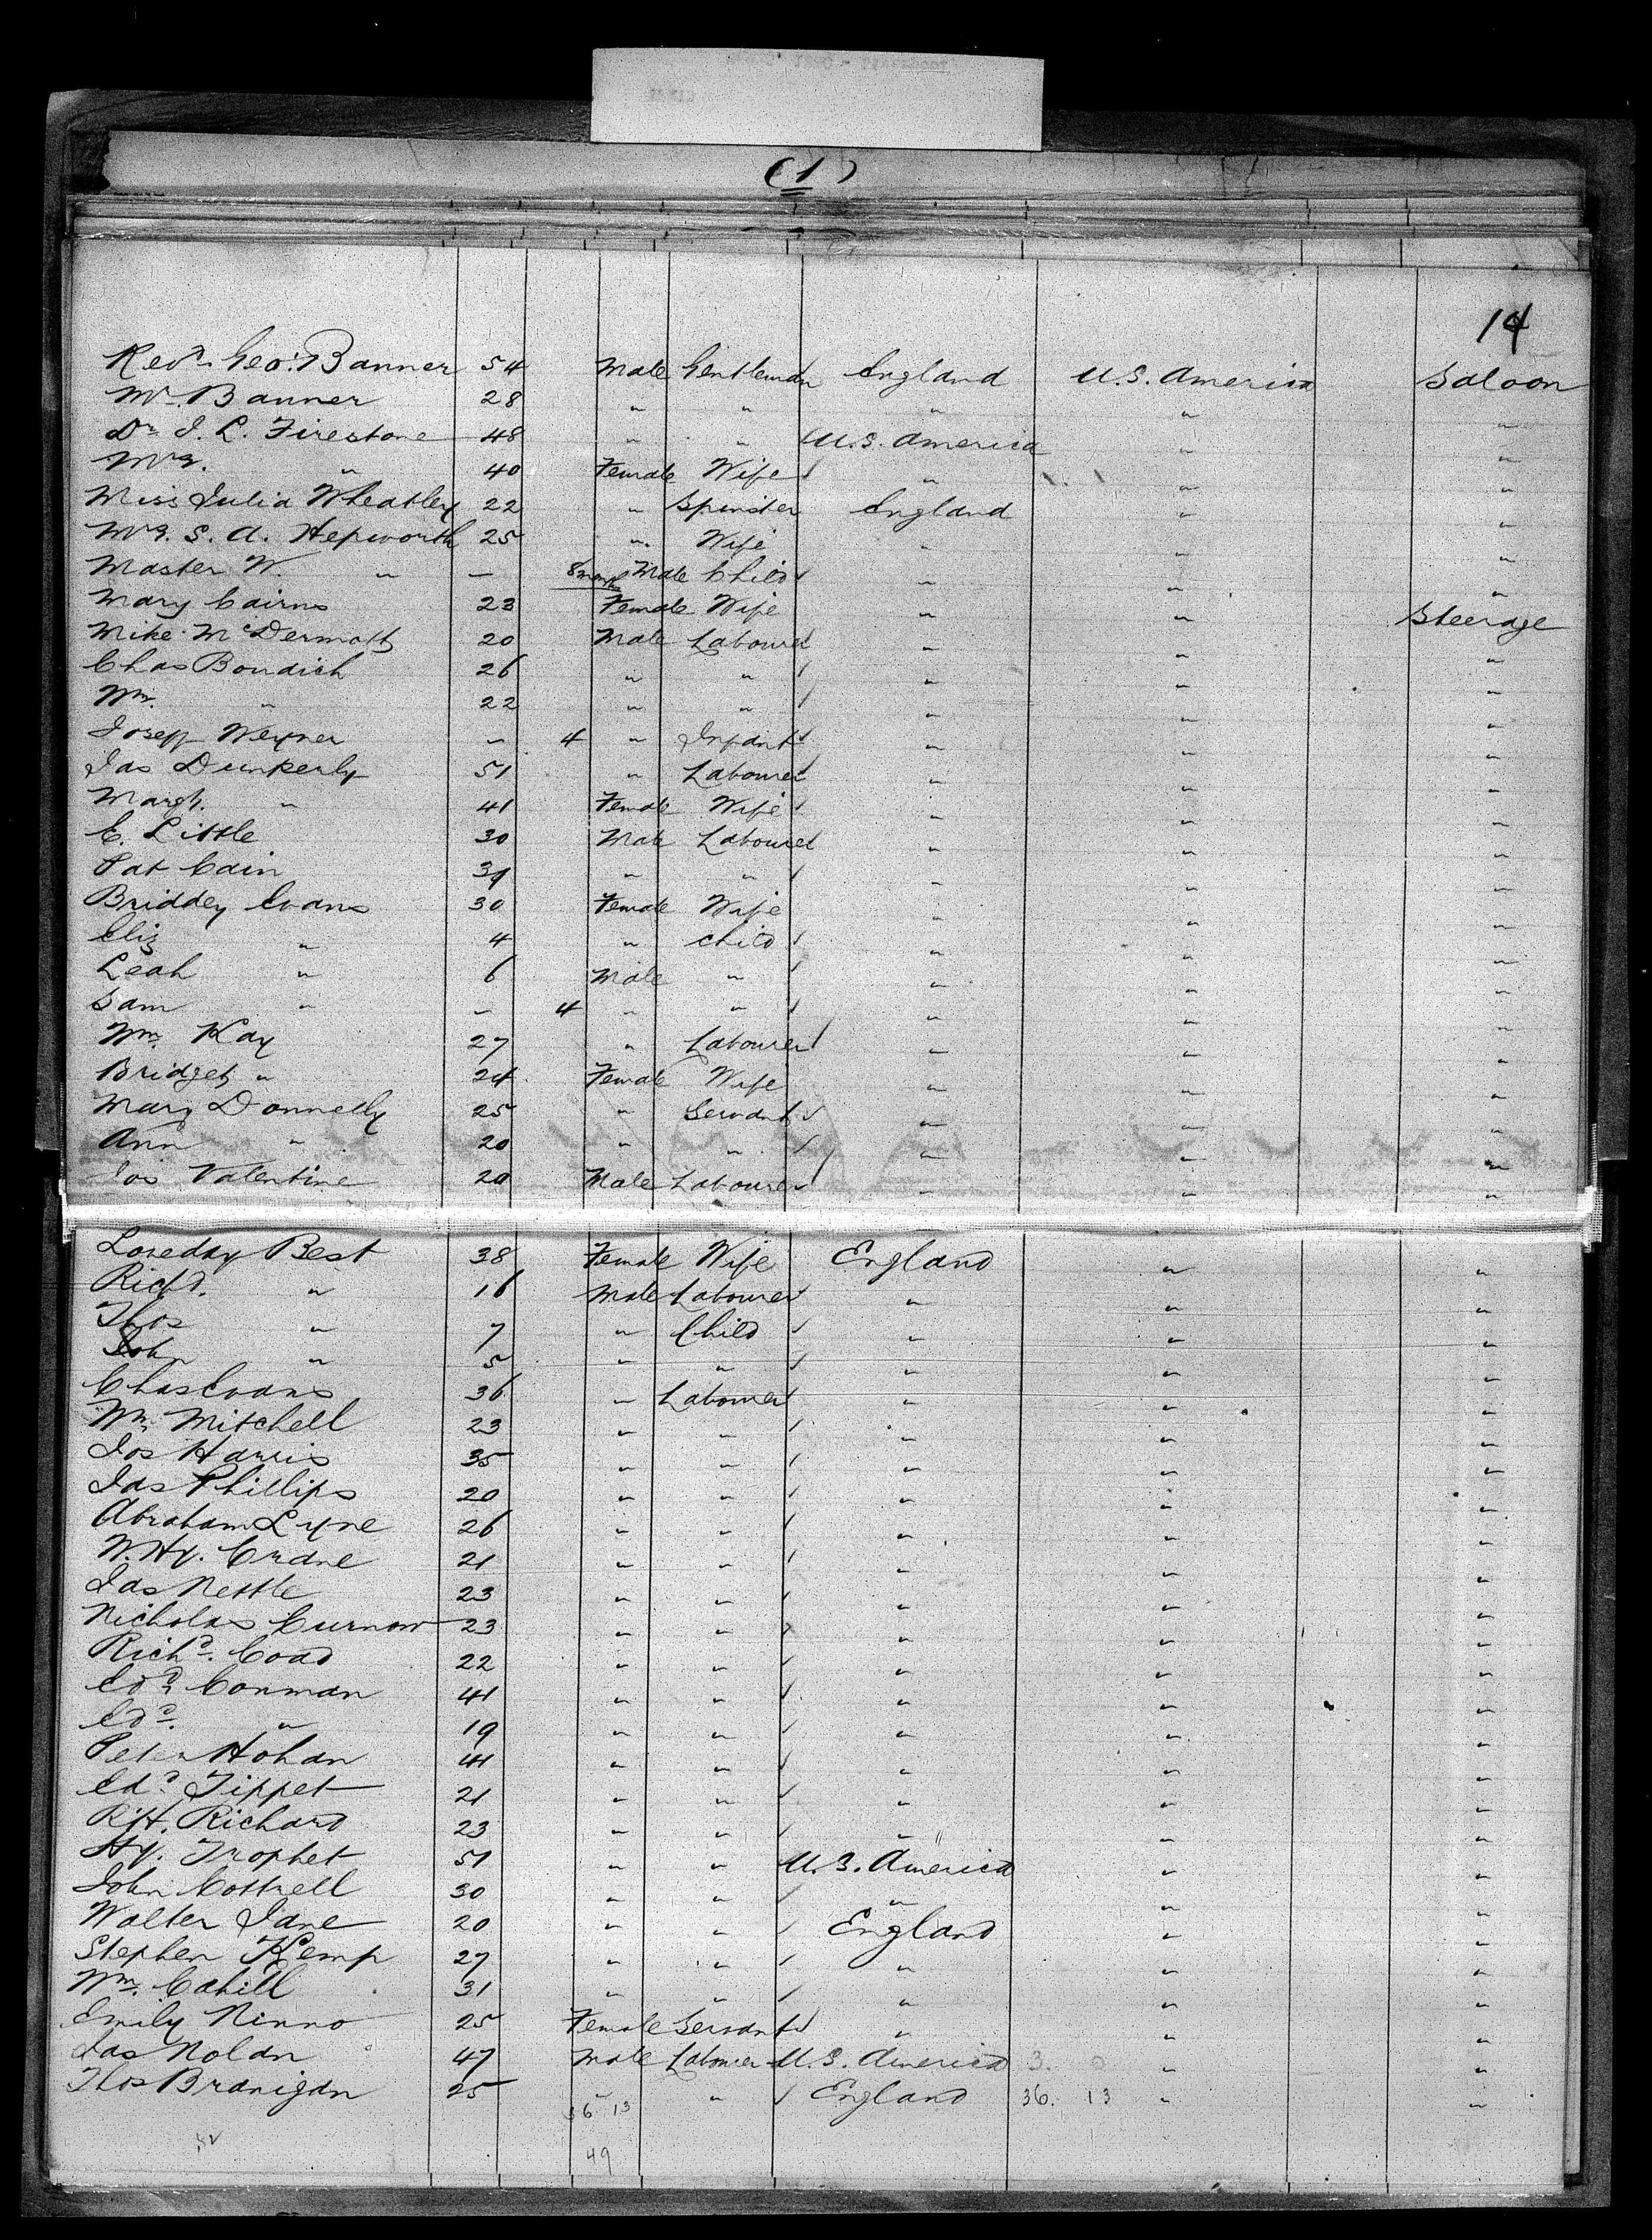 (1)
14
Revd. Geo. Banner 54 Male Gentleman England U.S. America Saloon
Mr. Banner 28 " " " " "
Dr. J. L. Firestone 48 " " U.S. America " "
Mrs. " 40 Female Wife " " "
Miss Julia Wheatley 22 " Spinster England " "
Mrs. S. A. Hepworth 25 " Wife " " "
Master W. " — 8 month Male Child " " "
Mary Cairns 23 Female Wife " " Steerage
Mike McDermott 20 Male Labourer " " "
Chas Bowdich 26 " " " " "
Wm. " 22 " " " " "
Joseph Weyner " 4 " Infant " " "
Jas Dunkerly 51 " Labourer " " "
Margt. " 41 Female Wife " " "
C. Little 30 Male Labourer " " "
Pat Cain 39 " " " " "
Briddey Evans 30 Female Wife " " "
Eliz " 4 " child " " "
Leah " 6 Male " " " "
Sam " " 4 " " " " "
Wm. Kay 27 " Labourer " " "
Bridget " 24 Female Wife " " "
Mary Donnelly 25 " Servant " " "
Ann " 20 " " " " "
Jos Valentine 20 Male Labourer " " "
Loveday Best 38 Female Wife England " "
Richd. " 16 Male Labourer " " "
Thos " 7 " Child " " "
John " 5 " " " " "
Chas Evans 36 " Labourer " " "
Wm. Mitchell 23 " " " " "
Jos Harris 35 " " " " "
Jas Phillips 20 " " " " "
Abraham Lyne 26 " " " " "
W. Hy. Crane 21 " " " " "
Jas Nettle 23 " " " " "
Nicholas Curnow 23 " " " " "
Richd. Coad 22 " " " " "
Edd. Conman 41 " " " " "
Edd. " 19 " " " " "
Peter Hohan 41 " " " " "
Edd. Tippet 21 " " " " "
R. H. Richard 23 " " " " "
Hy. Trophet 51 " " U.S. America " "
John Cottrell 30 " " " " "
Walter Jane 20 " " England " "
Stephen Kemp 27 " " " " "
Wm. Cahill 31 " " " " "
Emily Ninno 25 Female Servant " " "
Jas Nolan 47 Male Labourer U.S. America 3. 0 " "
Thos Branigan 25 " " England 36. 13 " "
36 13
49